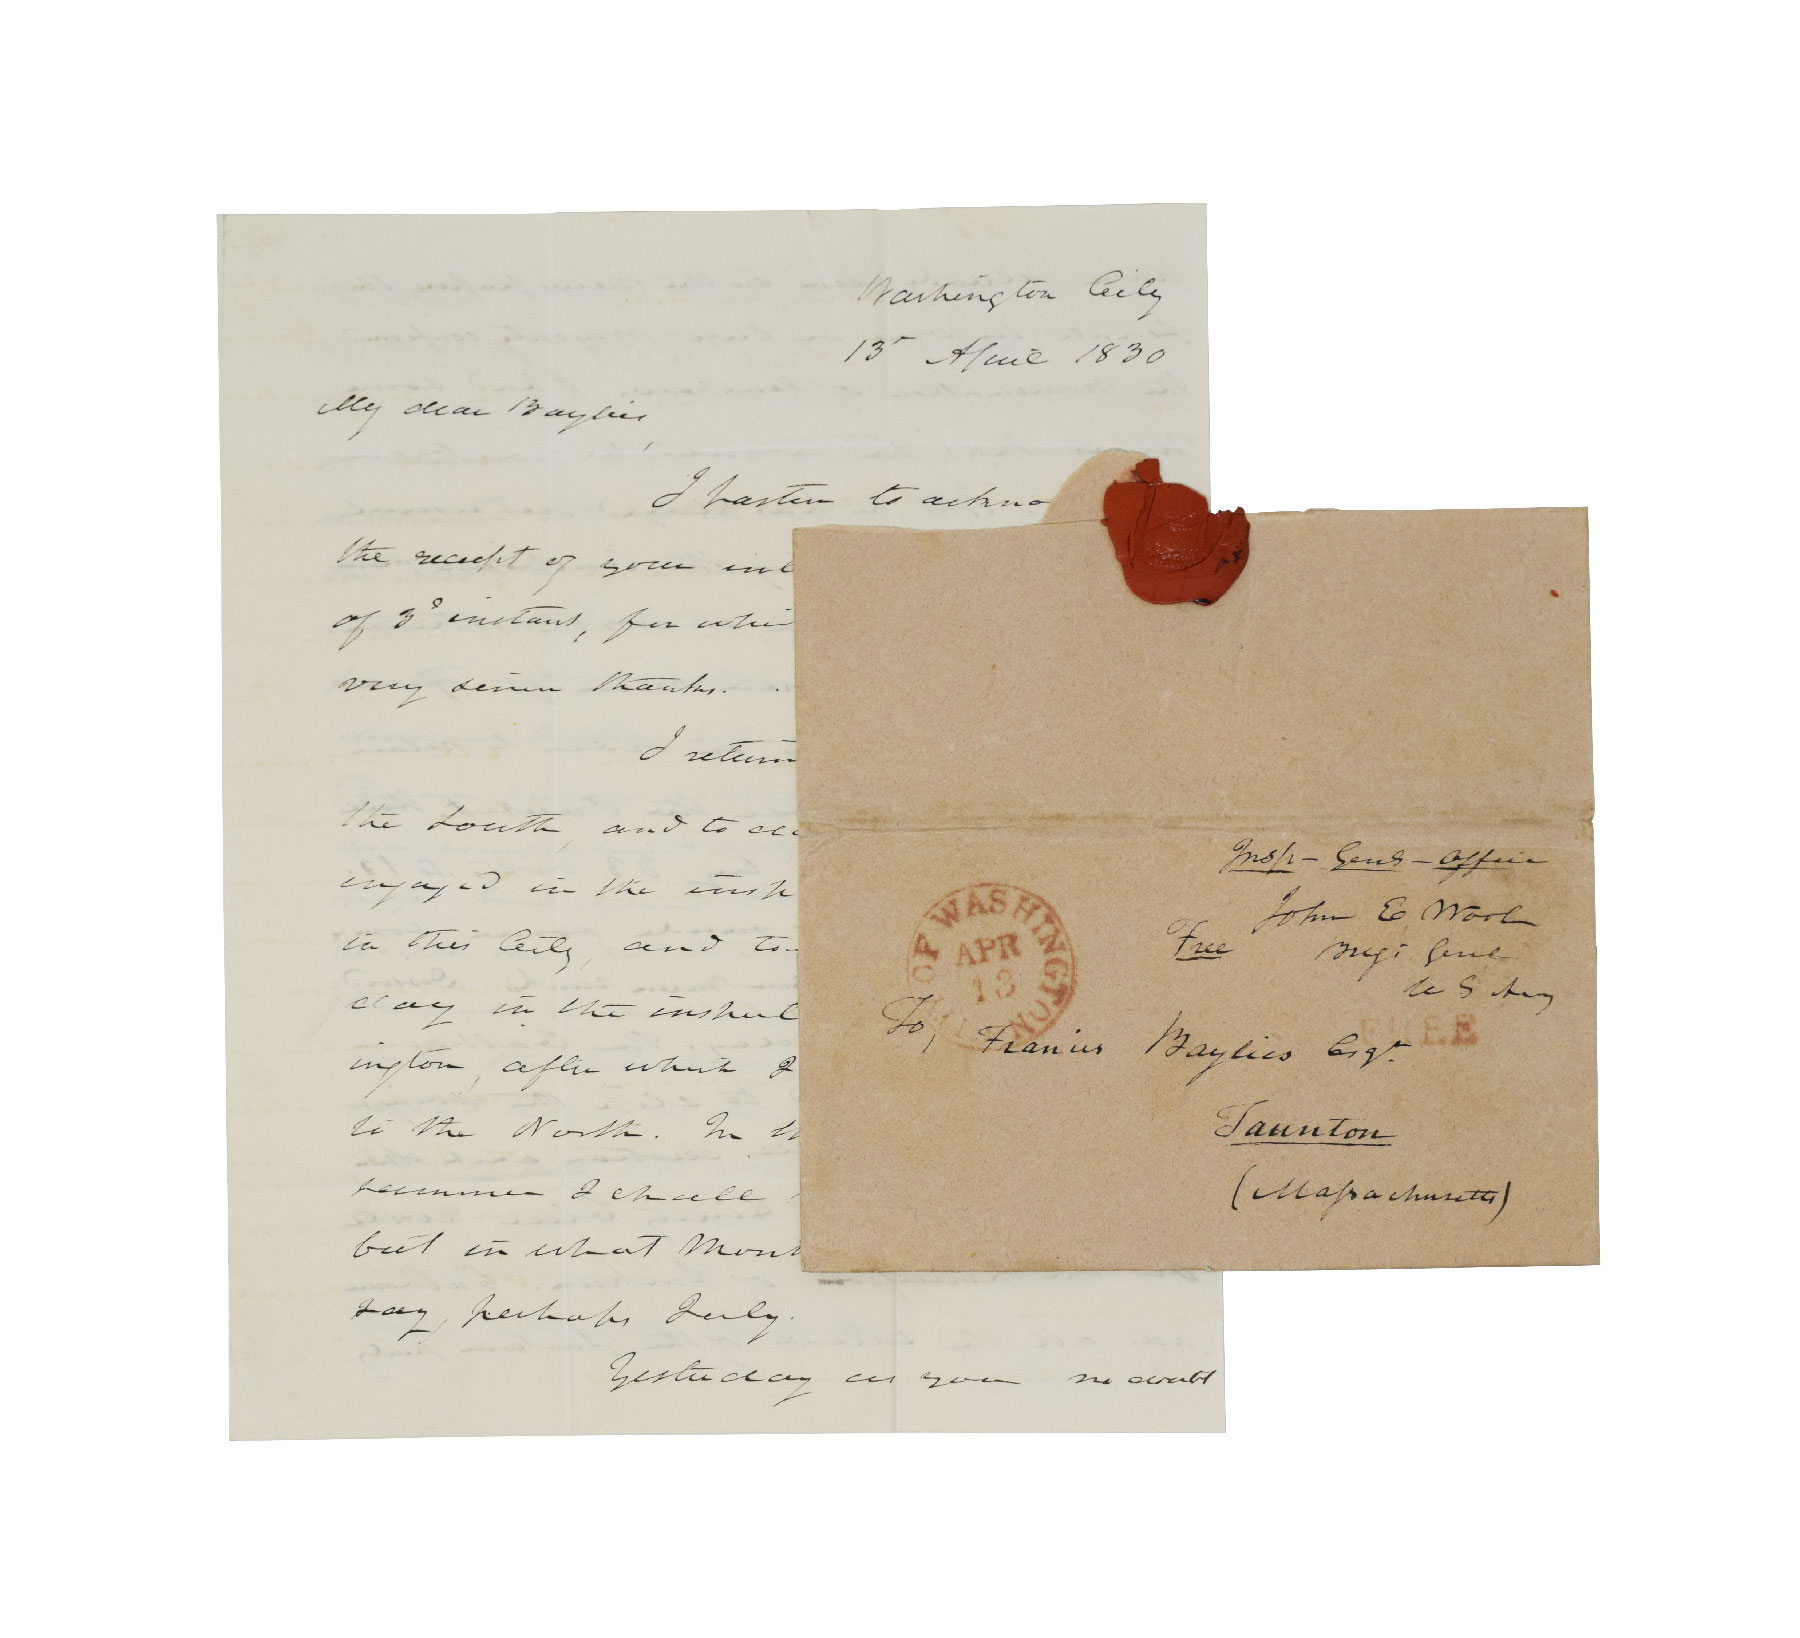 Washington City
13 April 1830
My dear Baylies,
I hasten to ackno
the receipt of your
of 3d instant, for whi
very sincere thanks.
I return
the South, and to
engaged in the insp
in this City, and to
day in the
ington, after which I
to the North. In th
summer I shall
but in what Mont
say, perhaps July.
Yesterday as you no doubt
Insp- Genls- office
John E Wool
Free Brigr Genl
U S Army
CITY OF WASHINGTON
APR
13
FREE
To, Francis Baylies Esqr.
Taunton
(Massachusetts)